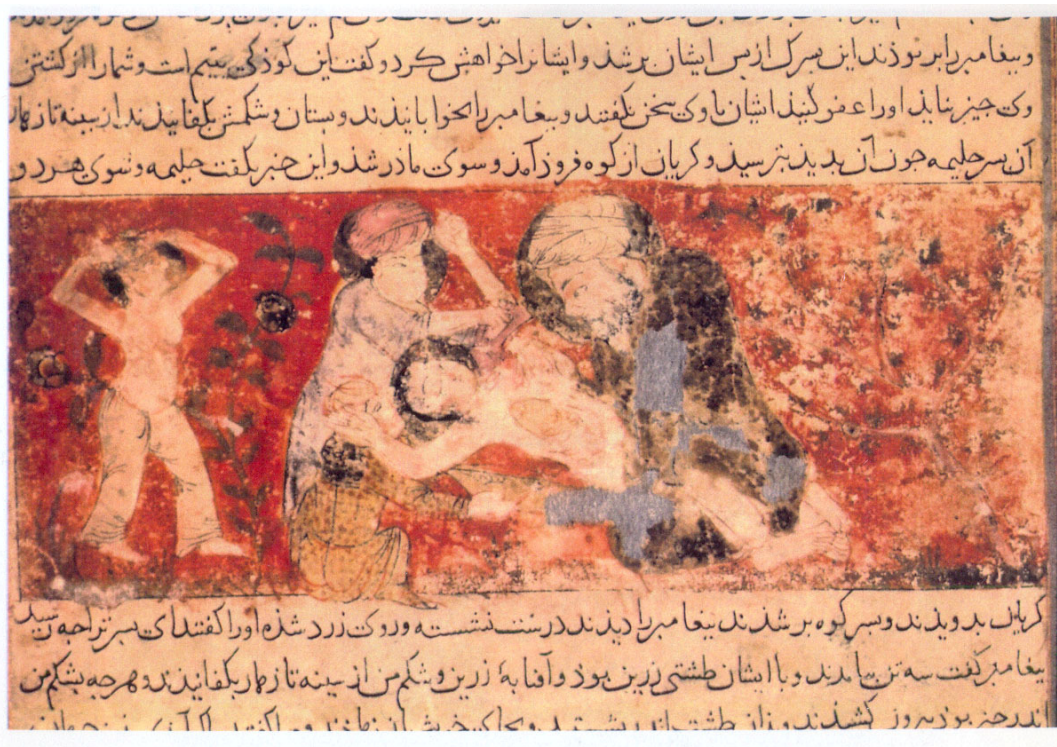 وبیغامبر را بر بوذند این بسرک از بس ایشان بر شذ و ایشانرا خواهش کرد و گفت این کوذکی یتیم است و شما را از کشتن
وی جیز نیایذ او را عفو کنیذ ایشان با وی سخن نگفتند و بیغامبر را بخوابانیذند و بستان و شکمش بکفانیذند از سینه تا زهار
آن بسر حلیمه جون آن بدیذ بترسیذ و کریان از کوه فروذ آمذ و سوی ماذر شذ و این خبر بگفت حلیمه و شوی هر دو
کریان بدویذند و بسر کوه بر شذند بیغامبر را دیذند درست نشسته و روی زرد شذه او را گفتند ای بسر ترا جه رسید
بیغامبر گفت سه تن بیامدند و با ایشان طشتی زرین بوذ و آفتابهٔ زرین و شکم من از سینه تا زهار بکفانیدند و هرجه بشکم من